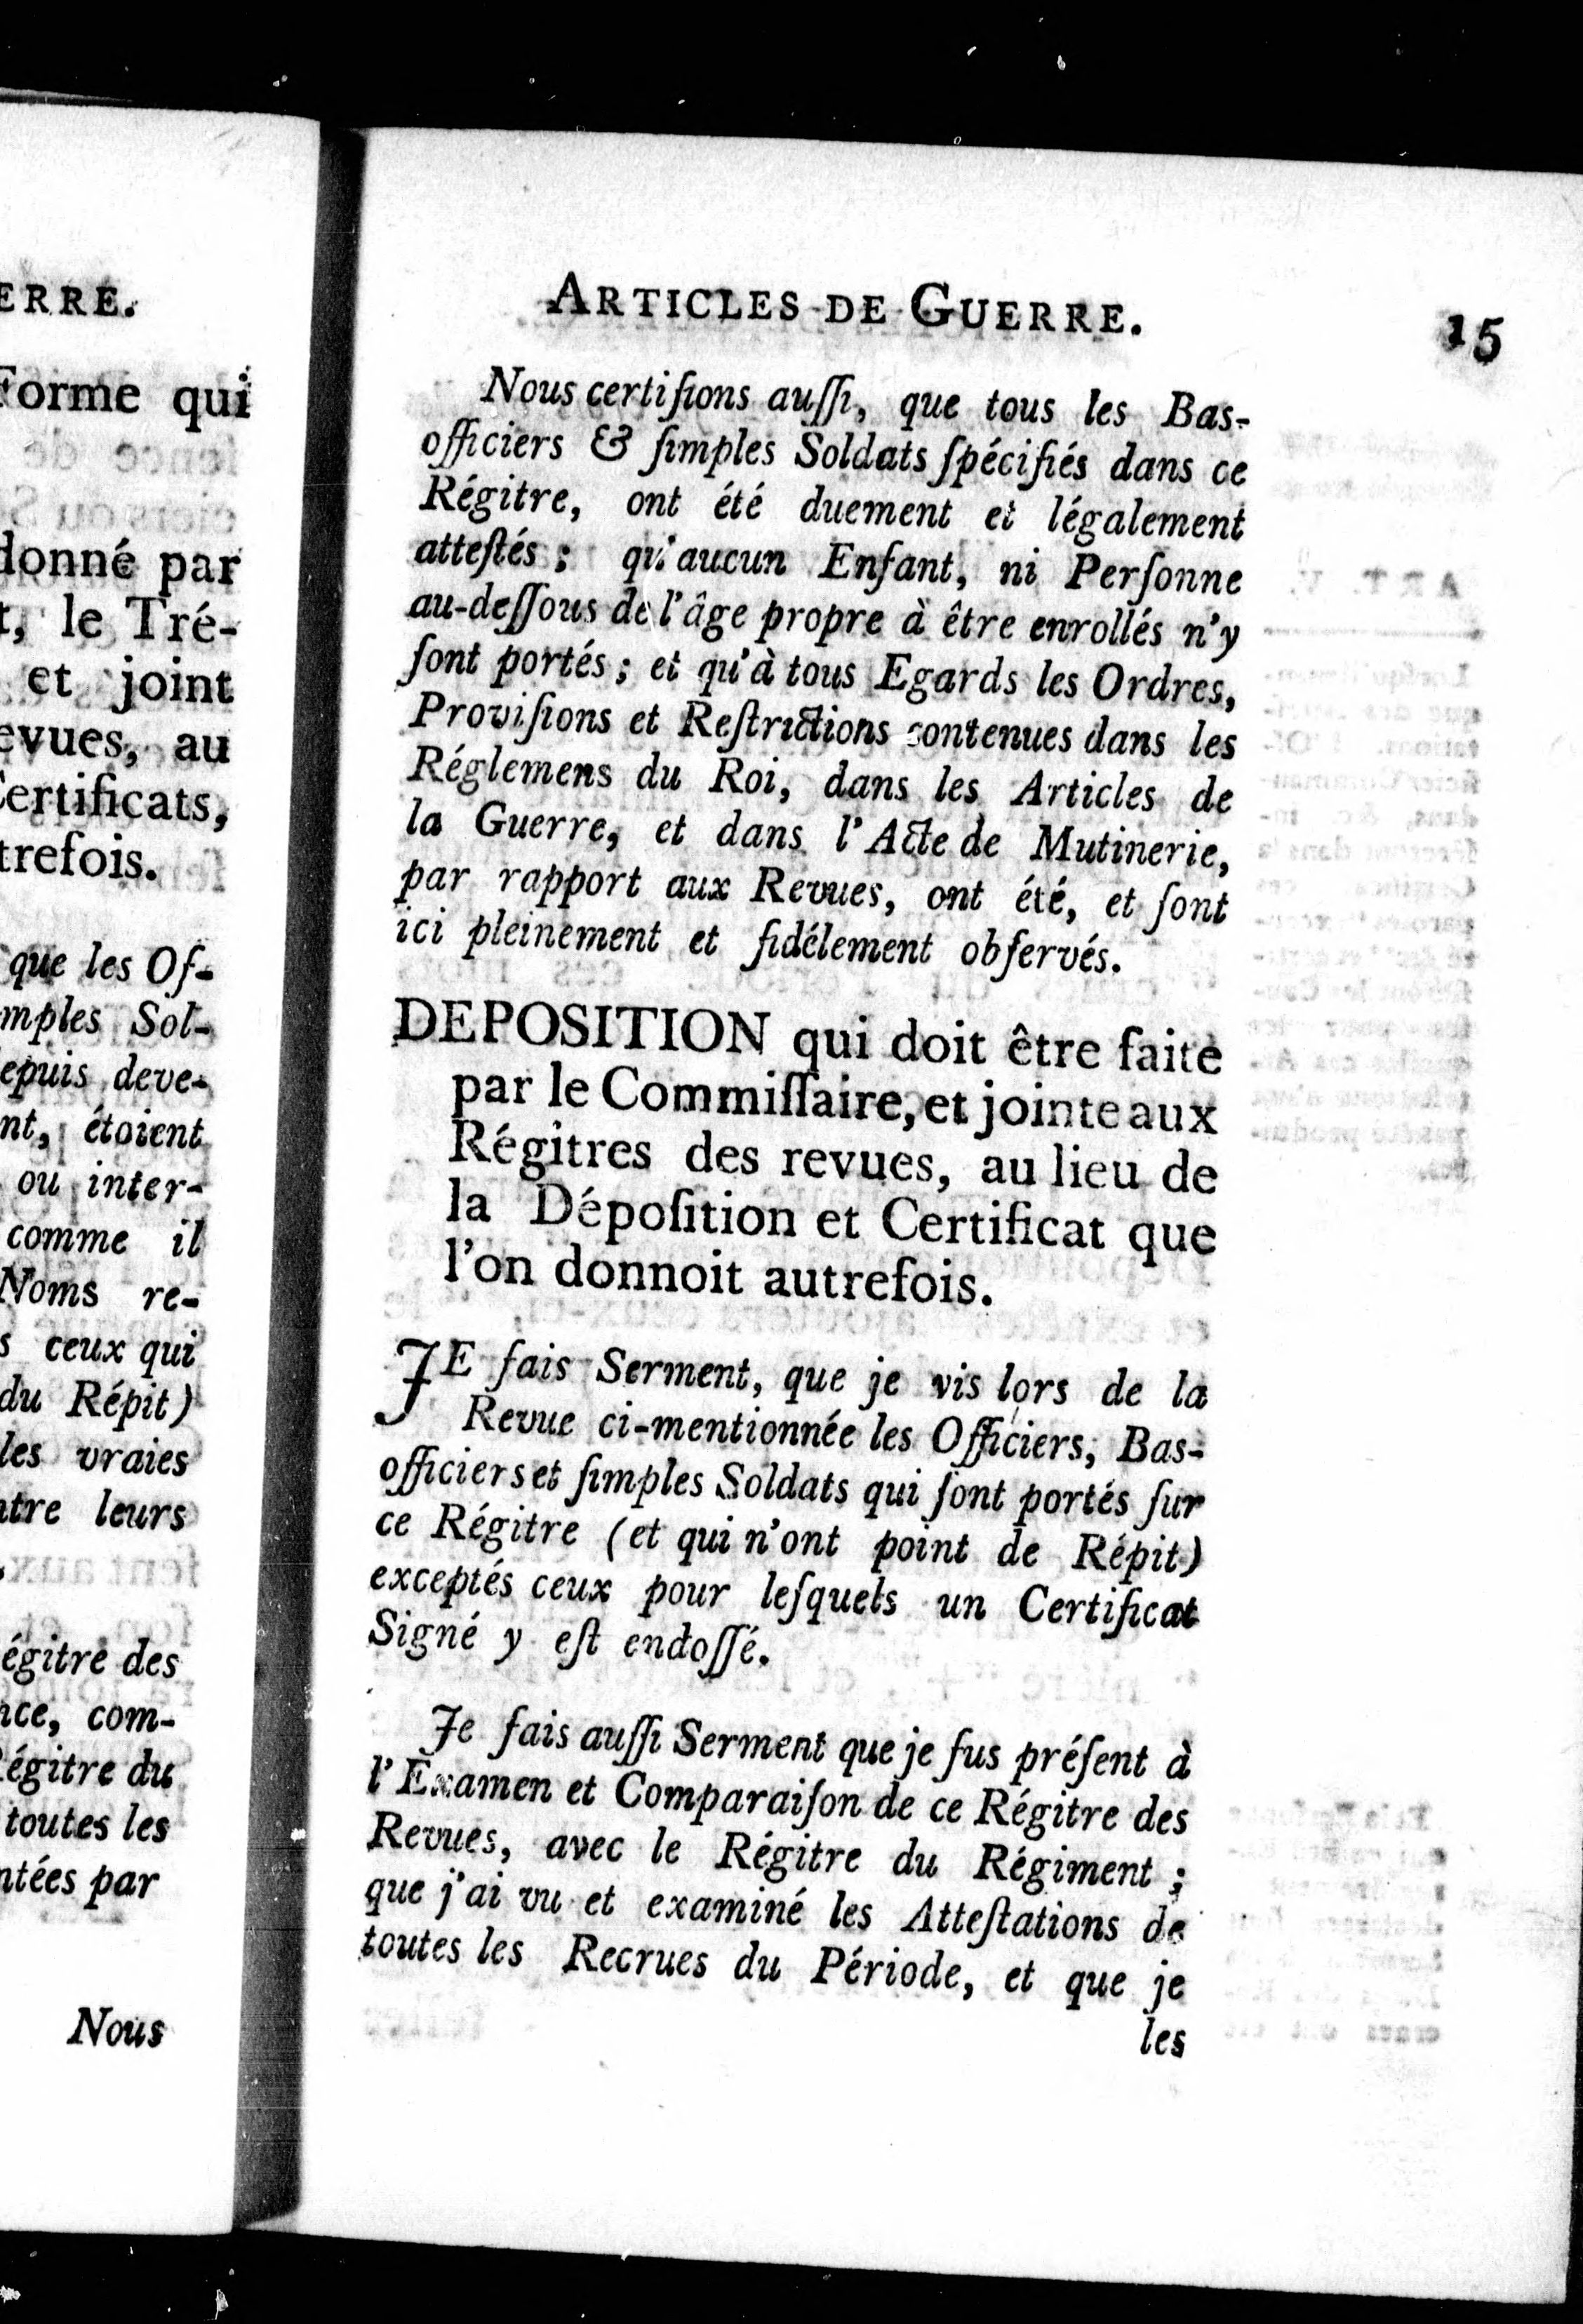 ERRE.
Forme qui
donné par
t, le Tré-
et joint
evues, au
Certificats,
trefois.
que les Of-
mples Sol-
epuis deve-
nt, étoient
ou inter-
comme il
Noms re-
s ceux qui
du Répit)
les vraies
ntre leurs
égitre des
nce, com-
Régitre du
toutes les
ntées par
Nous
ARTICLES DE GUERRE. 15
Nous certifions auſſi, que tous les Bas-
officiers & ſimples Soldats ſpécifiés dans ce
Régitre, ont été duement et légalement
atteſtés; qu'aucun Enfant, ni Perſonne
au-deſſous de l'âge propre à être enrollés n'y
ſont portés; et qu'à tous Egards les Ordres,
Proviſions et Reſtrictions contenues dans les
Réglemens du Roi, dans les Articles de
la Guerre, et dans l'Acte de Mutinerie,
par rapport aux Revues, ont été, et ſont
ici pleinement et fidélement obſervés.
DEPOSITION qui doit être faite
par le Commiſſaire, et jointe aux
Régîtres des revues, au lieu de
la Dépoſition et Certificat que
l'on donnoit autrefois.
JE fais Serment, que je vis lors de la
Revue ci-mentionnée les Officiers, Bas-
officiers et ſimples Soldats qui ſont portés ſur
ce Régitre (et qui n'ont point de Répit)
exceptés ceux pour leſquels un Certificat
Signé y eſt endoſſé.
Je fais auſſi Serment que je fus préſent à
l'Examen et Comparaiſon de ce Régitre des
Revues, avec le Régitre du Régiment;
que j'ai vu et examiné les Atteſtations de
toutes les Recrues du Période, et que je
les